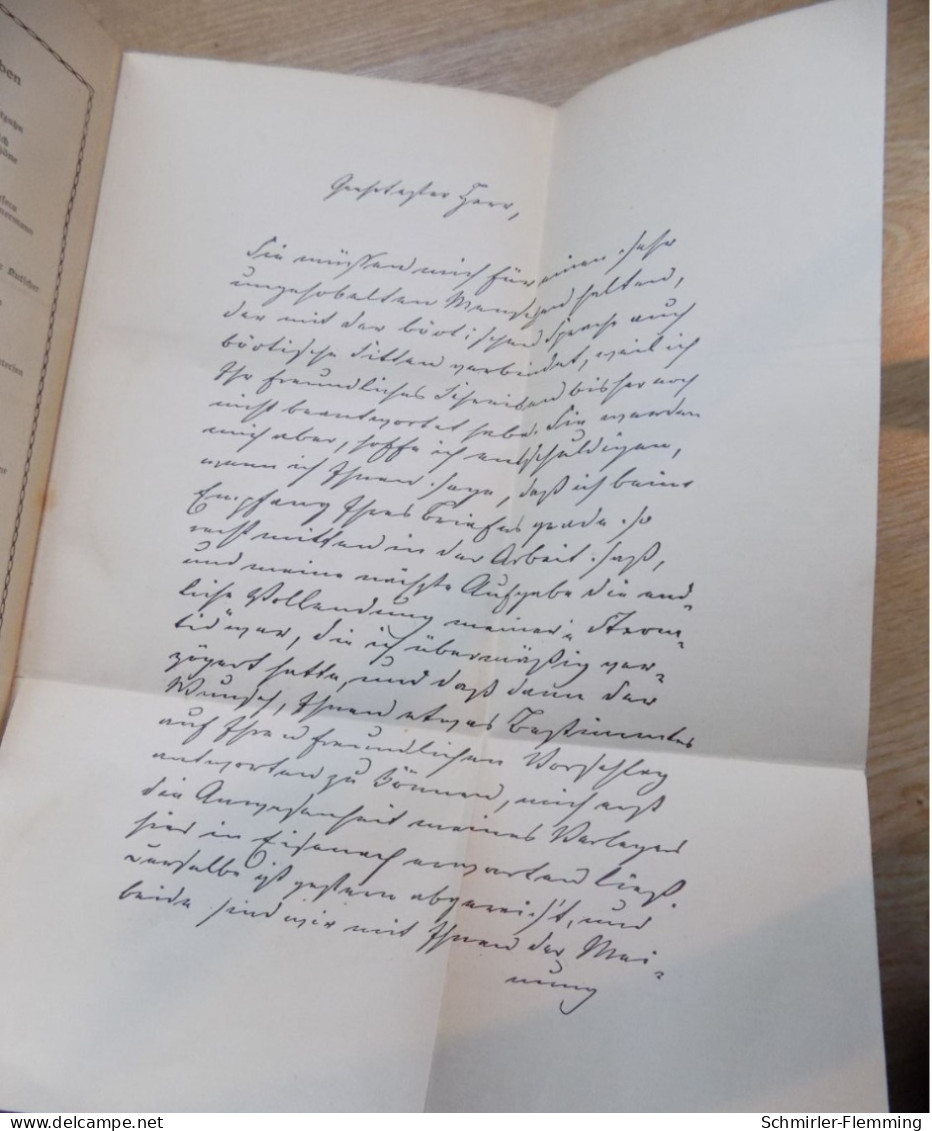 ben
Geehrtester Herr,
Sie müssen mich für einen sehr
ungehobelten Menschen halten,
der mit der böotischen Sprache auch
böotische Sitten verbindet, weil ich
Ihr freundliches Schreiben bisher noch
nicht beantwortet habe. Sie werden
mich aber, hoffe ich entschuldigen,
wenn ich Ihnen sage, daß ich beim
Empfang Ihres Briefes grade so
recht mitten in der Arbeit saß,
und meine nächste Aufgabe die end-
liche Vollendung meiner „Strom-
tid" war, die ich übermäßig ver-
zögert hatte, und daß dann der
Wunsch, Ihnen etwas Bestimmtes
auf Ihren freundlichen Vorschlag
antworten zu können, mich erst
die Anwesenheit meines Verlegers
hier in Eisenach erwarten ließ.
Derselbe ist gestern abgereis't, und
beide sind wir mit Ihnen der Mei-
nung
Schmirler-Flemming